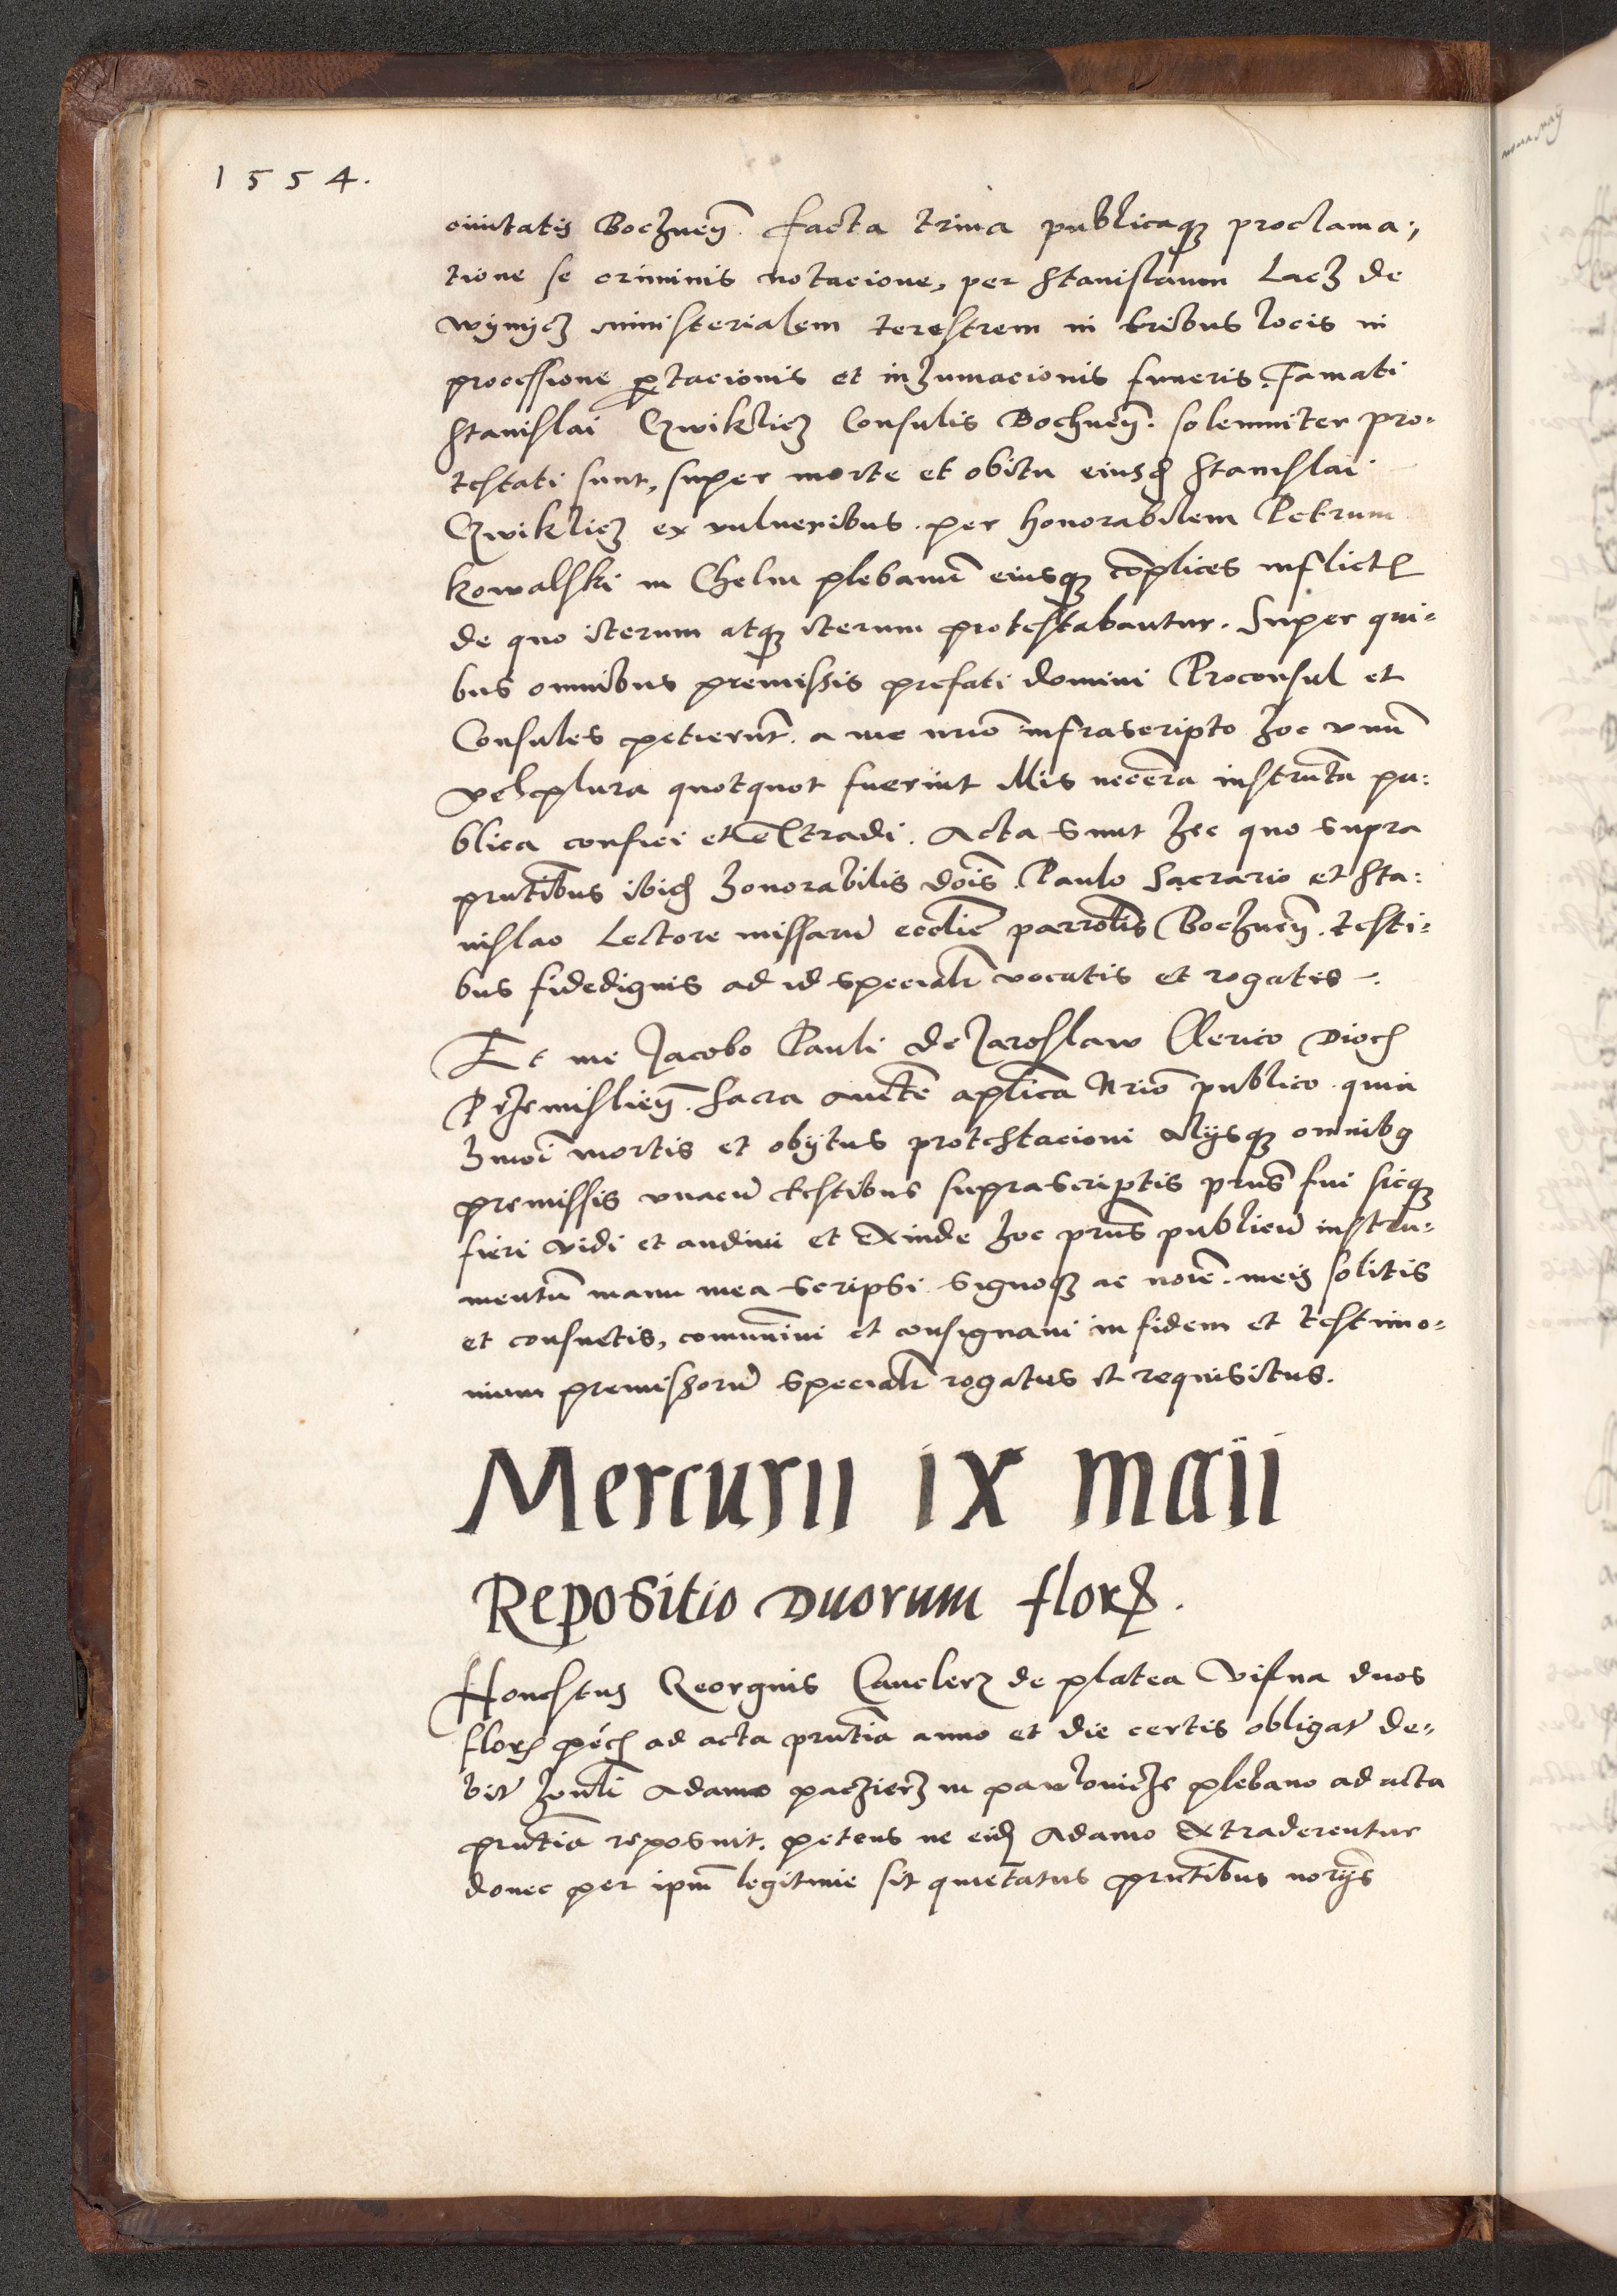 1554.
ciuitatis Bochneñ. facta trina publicaqȝ proclama⸗
tione se criminis notacione, per Stanislaum Lach de
wijnijcz ministerialem terestrem in tribus locis in
processione portacionis et inhumacionis funeris. Famati
Stanislai Czwiklicz Consulis Bochneñ. solemniter pro⸗
testati sunt, super morte et obitu eiusd Stanislai
Czwiklicz ex vulneribus per honorabilem Petrum
Kowalski in Chelm plebanū eiusqȝ cōplices inflictꝭ
de quo iterum atqȝ iterum protestabantur. Super qui⸗
bus omnibus premissis prefati domini Proconsul et
Consules petierūt a me nrio infrascripto hoc vnū
vel plura quotquot fuerint illis necēra instrūta pu⸗
blica confici et extradi. Acta sunt hec quo supra
pntibus ibid honorabilis dois Paulo Sacrario et Sta⸗
nislao Lectore missarū ecclie parrolis Bochneñ. testi⸗
bus fidedignis ad id specialr vocatis et rogatis
Et me Jacobo Pauli de Jaroslaw Clerico Dioc
Przemislieñ. Sacra aucte aplica Nrio publico quia
hmoi mortis et obijtus protestacioni alijsqȝ omnibꝫ
premissis vnacū testibus suprascriptis pñs fui sicqȝ
fieri vidi et audiui et exinde hoc pñs publicū instru⸗
mentū manu mea scripsi signoqȝ ac noie meis solitis
et consuetis, comuniui et consignaui in fidem et testimo⸗
nium premissorū specialr rogatus et requisitus.
Mercurii ix maii
Repositio Duorum florꝝ.
Honestus Georgius Canclerz de platea Visna duos
florꝝ pec ad acta pntia anno et die certis obligat de⸗
bit honli Adamo paczierz in pawlowicze plebano ad acta
pntia reposuit. petens ne eid Adamo extraderentur
donec per ipm legitime sit quietatus pntibus norijs